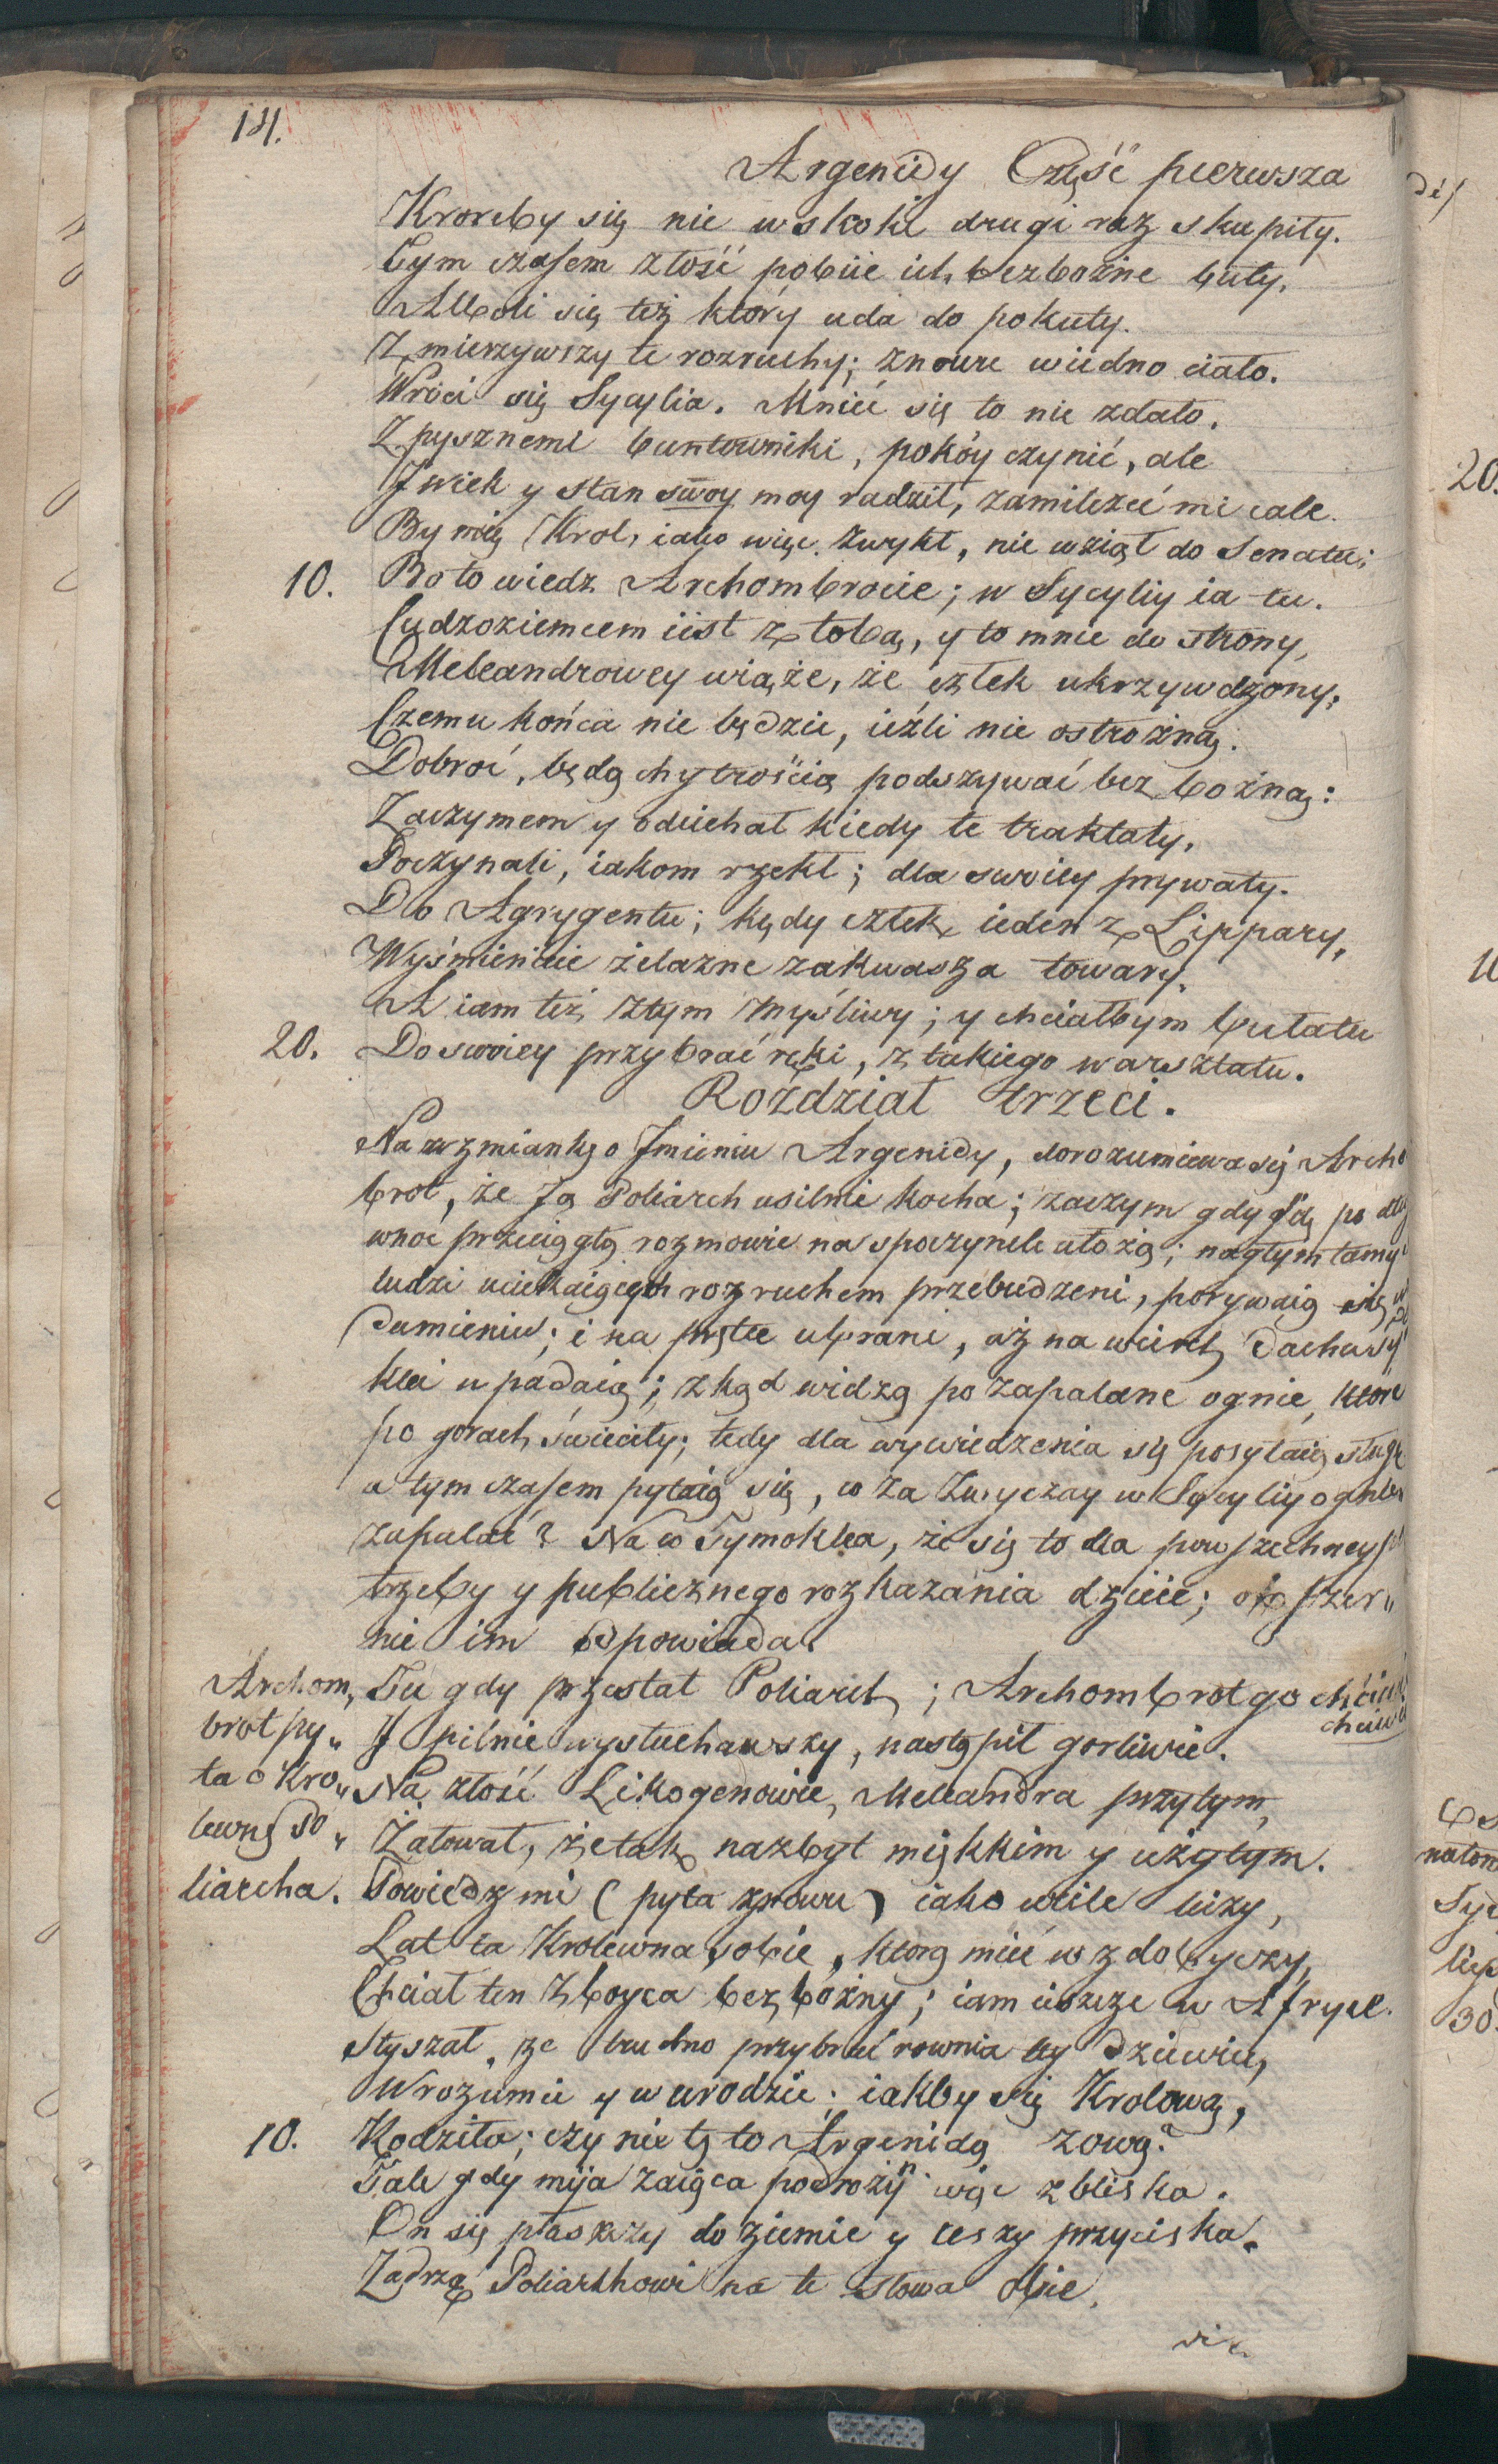 141.
Argenidy Część pierwsza
Kroreby się nie wskoki drugi raz skupiły.
Tym czasem złość pobiie ich bezbożne buty,
Alboli się też który uda do pokuty.
Zmierzywszy te rozruchy; znowu wiedno ciało.
Wróci się Sycylia. Mnieć się to nie zdało.
Z pysznemi buntowniki, pokóy czynić, ale
I wiek y stan swoy moy radził, zamilczeć mi cale.
By mię Krol, iako więc zwykł, nie wziął do Senatu;
10. Bo to wiedz Archombrocie; w Sycyliy ia tu.
Cudzoziemcem iist z tobą, y to mnie do strony,
Meleandrowey wiąże, że człek ukrzywdzony,
Czemu końca nie będzie, ieźli nie ostrożną.
Dobroć, będą chytrością podszywać bezbożną:
Zaczymem y odiechał kiedy te traktaty,
Poczynali, iakom rzekł; dla swoiey prywaty.
Do Agrygentu; kędy człek ieden z Lippary,
Wyśmienicie żelazne zakwasza towary.
A iam też ztym myśliwy; y chciałbym bułatu
20. Do swoiey przybrać ręki, z takiego warsztatu.
Rozdział trzeci.
Na wzmiankę o Imieniu Argenidy, dorozumiewa się Archo
brot, że Ją Poliarch usilnie kocha; zaczym gdy się po dłu
wnoc przeciągłą rozmowie na spoczynek ułożą; nagłym tamy
ludzi uciekaiących rozruchem przebudzeni, porywaią się w
dumieniu; i na prętce ubrani, aż na wierzch dachu
klei upadaią; zkąd widzą pozapalane ognie, które
po gorach świeciły; tedy dla wywiedzenia się posyłaią sługę
a tym czasem pytaią się, co za zwyczay w Sycyliy ognie
zapalać? Na co Tymoklea, że się to dla powszechney
trzeby y publicznego rozkazania dzieie; obszer„
nie im odpowiada.
Archom„ Tu gdy przestał Poliarch; Archombrot go chciwi
chciwie
brot py„ I pilnie wysłuchawszy, nastąpił gorliwie.
ta o Kro„ Na złość Likogenowie, Meleandra przytym,
lewnę Po„ Żałował, że tak nazbyt miękkim y użytym.
liarcha. Powiedz mi (pyta znowu) iako wiele liczy,
Lat ta Krolewna sobie, ktorą mieć w zdobyczy,
Chciał ten zboyca bezbożny; iam ieszcze w Afryce.
Słyszał, że trudno przybrać rownia tey dziewicy,
W rozumie y w urodzie; iakby się Krolową,
10. Rodziła; czy nie tę to Argenidą zową?
Tale gdy mija zaiąca podrożny więc zbliska.
On się płaszczy do ziemie y ceszy przyciska.
Zadrzą Poliarchowi na te słowa obie,